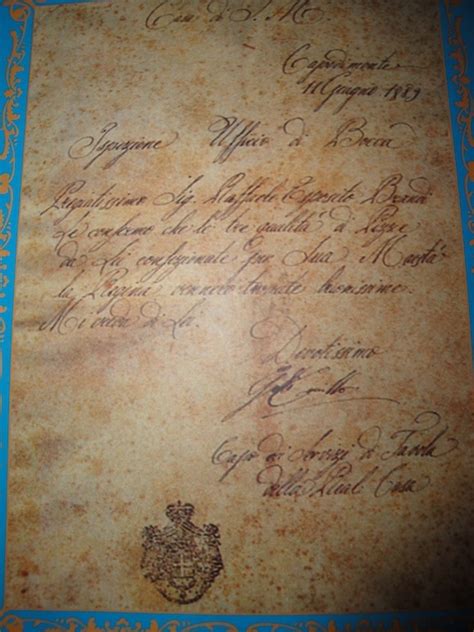 Casa di S. M.
Capodimonte
11 Giugno 1889
Ispezione Ufficio di Bocca
Pregiatissimo Sig. Raffaele Esposito Brandi
Le confermo che le tre qualità di Pizze
da Lei confezionate per Sua Maestà
la Regina vennero trovate buonissime.
Mi creda di Lei
Devotissimo
Galli Camillo
Capo dei Servizi di Tavola
della Real Casa